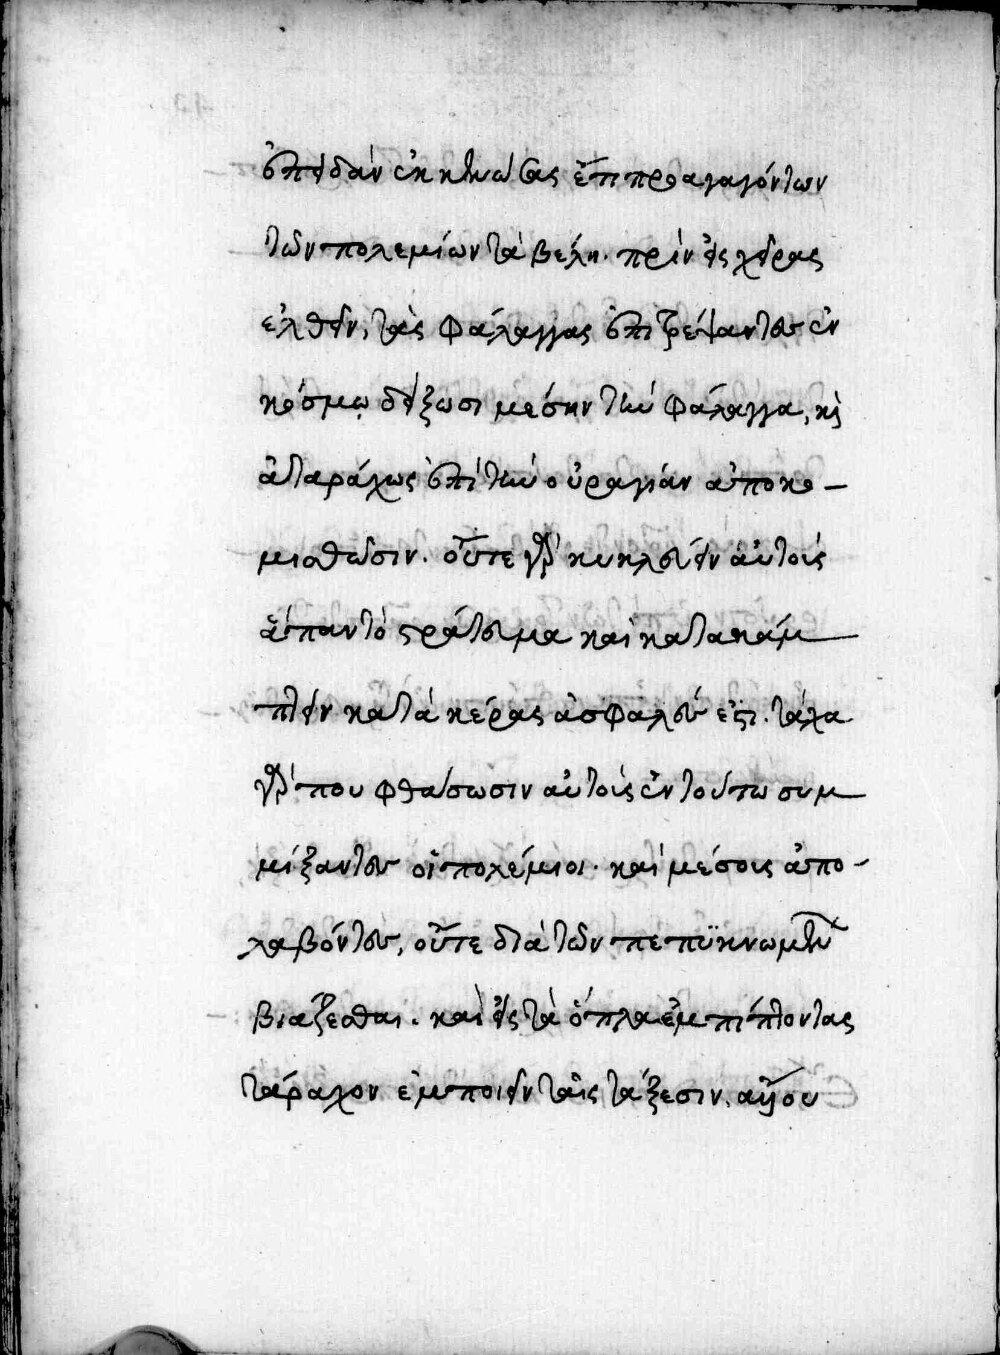 ἐπειδὰν ἐκκενώσας ἔτι προαγαγόντων
τῶν πολεμίων τὰ βέλη. πρὶν εἰς χεῖρας
ἐλθεῖν, τὰς φάλαγγας ἐπιτρέψαντες ἐν
κόσμῳ δείξωσι μέσην τὴν φάλαγγα, κὶ
ἀταράχως ἐπὶ τὴν οὐραγίαν ἀποκο-
μισθῶσιν. οὔτε γὰρ κυκλεύειν αὐτοὺς
ἅπαν τὸ στράτευμα καὶ κατακάμ
πτειν κατὰ κέρας ἀσφαλὲς ἐστι. τάχα
γάρ που φθάσωσιν αὐτοὺς ἐν τούτω συμ
μίξαντες οἱ πολέμιοι. καὶ μέσοις ἀπο-
λαβόντες, οὔτε διὰ τῶν πεπϋκνωμένων
βιάζεσθαι. καὶ εἰς τὰ ὅπλα ἐμπίπτοντας
τάραχον ἐμποιεῖν ταῖς τάξεσιν,